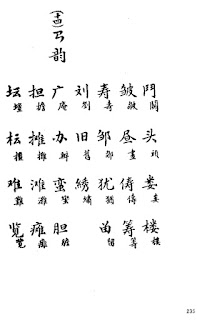 (十四)ㄢ韵
坛 担 广 刘 寿 皱 鬥
壇 擔 庵 劉 壽 皺 鬭
摊 办 旧 邹 昼 头
攤 辦 舊 鄒 晝 頭
难 滩 蛮 綉 犹 俦 娄
難 灘 蠻 繡 猶 儔 婁
览 瘫 胆 畄 筹 楼
覽 癱 膽 留 籌 樓
231